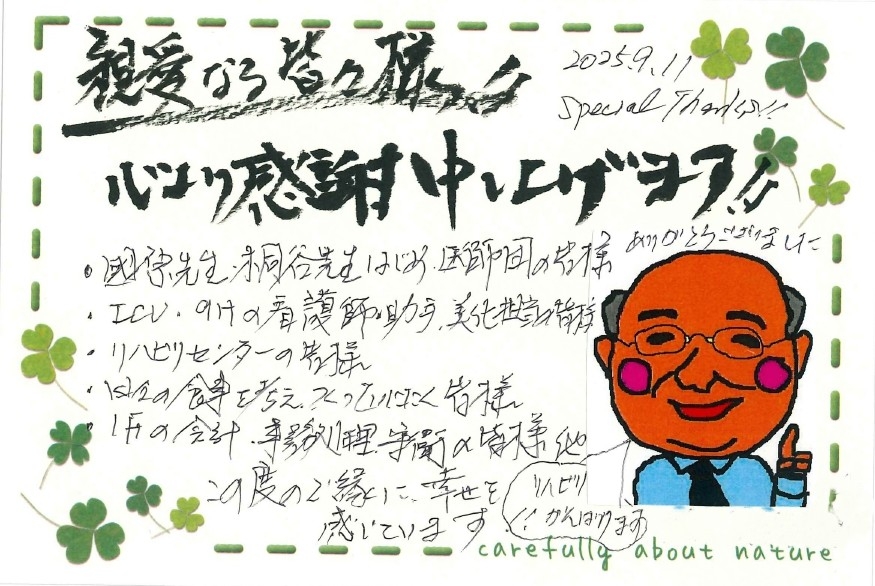 親愛なる皆々様!!
2025.9.11
Special Thanks!!
心より感謝申し上げます!!
ありがとうございました
・國原先生・桐谷先生はじめ、医師団の皆様
・ICU・9Hの看護師・助手、美化担当の皆様
・リハビリセンターの皆様
・の食事を考え、つくっていただく皆様
・1Fの会計、事務処理、守衛の皆様 他
この度のご縁に、幸せを
感じています
リハビリ
がんばります!!
carefully about nature